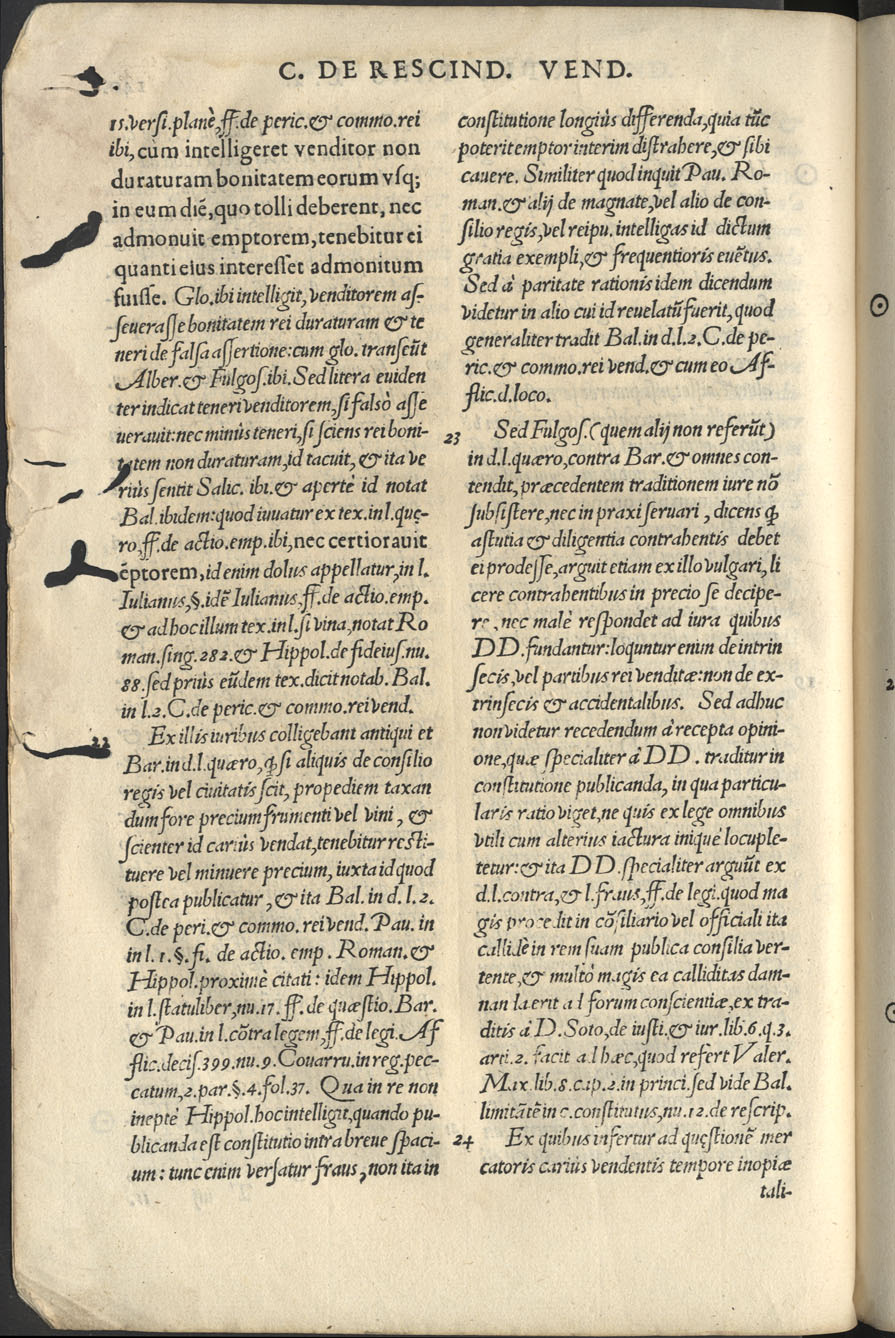 C. DE RESCIND. VEND.
15.versi.planè,ff.de peric.& commo.rei
ibi, cùm intelligeret venditor non
duraturam bonitatem eorum vsq;
in eum diē, quo tolli deberent, nec
admonuit emptorem, tenebitur ei
quanti eius interesset admonitum
fuisse. Glo.ibi intelligit, venditorem as-
seuerasse bonitatem rei duraturam & te
neri de falsa assertione: cum glo. transeūt
Alber.& Fulgos.ibi. Sed litera euiden
ter indicat teneri venditorem, si falsò asse
uerauit: nec minùs teneri, si sciens rei boni-
tatem non duraturam, id tacuit, & ita ve
riùs sentit Salic. ibi.& apertè id notat
Bal.ibidem: quod iuuatur ex tex. in l. quę-
ro,ff.de actio.emp.ibi, nec certiorauit
ēptorem, id enim dolus appellatur, in l.
Iulianus,§.idē Iulianus,ff.de actio.emp.
& ad hoc illum tex.in l.si vina, notat Ro
man.sing.282.& Hippol.de fideius.nu.
88.sed priùs eūdem tex.dicit notab. Bal.
in l.2.C.de peric.& commo.rei vend.
22 Ex illis iuribus colligebant antiqui et
Bar.in d.l.quæro, ꝙ si aliquis de consilio
regis vel ciuitatis scit, propediem taxan
dum fore precium frumenti vel vini, &
scienter id cariùs vendat, tenebitur resti-
tuere vel minuere precium, iuxta id quod
postea publicatur, & ita Bal. in d. l. 2.
C.de peri.& commo. rei vend. Pau. in
in l.1.§.fi. de actio. emp. Roman.&
Hippol.proximè citati: idem Hippol.
in l.statuliber,nu.17. ff.de quæstio. Bar.
& Pau.in l.cōtra legem,ff.de legi. Af
flic.decis.399.nu.9.Couarru.in reg.pec-
catum,2.par.§.4.fol.37. Qua in re non
ineptè Hippol.hoc intelligit, quando pu-
blicanda est constitutio intra breue spaci-
um: tunc enim versatur fraus, non ita in
constitutione longiùs differenda, quia tūc
poterit emptor interim distrahere, & sibi
cauere. Similiter quod inquit Pau. Ro-
man.& alij de magnate, vel alio de con-
silio regis, vel reipu. intelligas id dictum
gratia exempli, & frequentioris euētus.
Sed à paritate rationis idem dicendum
videtur in alio cui id reuelatū fuerit, quod
generaliter tradit Bal.in d.l.2.C.de pe-
ric.& commo.rei vend.& cum eo Af-
flic.d.loco.
23 Sed Fulgos.(quem alij non referūt)
in d.l.quæro, contra Bar.& omnes con-
tendit, præcedentem traditionem iure nō
subsistere, nec in praxi seruari, dicens ꝙ
astutia & diligentia contrahentis debet
ei prodesse, arguit etiam ex illo vulgari, li
cere contrahentibus in precio se decipe-
re, nec malè respondet ad iura quibus
DD.fundantur: loquntur enim de intrin
secis, vel partibus rei venditæ: non de ex-
trinsecis & accidentalibus. Sed adhuc
non videtur recedendum à recepta opini-
one, quæ specialiter à DD. traditur in
constitutione publicanda, in qua particu-
laris ratio viget, ne quis ex lege omnibus
vtili cum alterius iactura iniquè locuple-
tetur: & ita DD.specialiter arguūt ex
d.l.contra,& l.fraus,ff.de legi.quod ma
gis procedit in cōsiliario vel officiali ita
callidè in rem suam publica consilia ver-
tente, & multò magis ea calliditas dam-
nanda erit ad forum conscientiæ, ex tra-
ditis à D. Soto, de iusti.& iur.lib.6.q.3.
arti.2. facit ad hæc, quod refert Valer.
Max.lib.8.cap.2.in princi.sed vide Bal.
limitātē in c.constitutus,nu.12.de rescrip.
24 Ex quibus infertur ad quęstionē mer
catoris cariùs vendentis tempore inopiæ
tali-